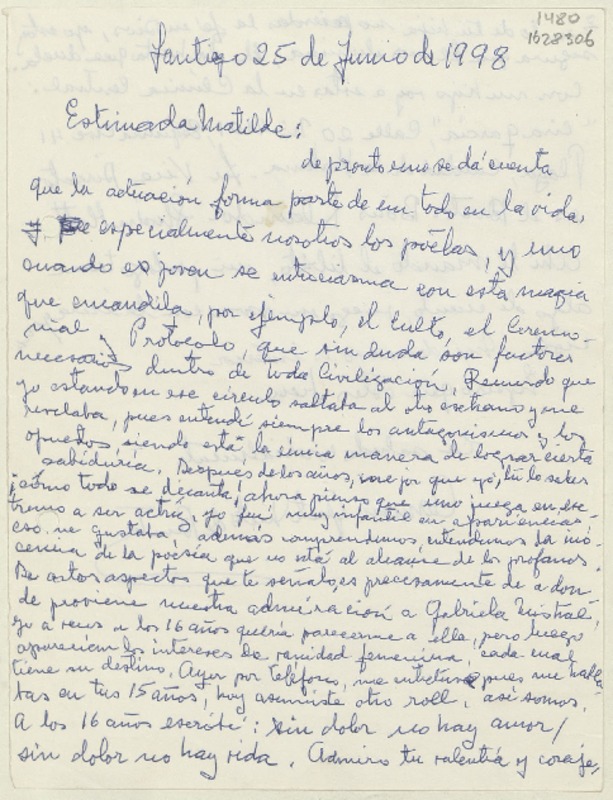 1480
1528306
Santiago 25 de Junio de 1998
Estimada Matilde:
de pronto uno se dá cuenta
que la actuación forma parte de un todo en la vida,
y especialmente nosotros los poëtas, y uno
cuando es joven se entusiasma con esta magia
que encandila, por ejemplo, el culto, el Ceremo-
nial y Protocolo, que sin duda son factores
necesarios dentro de toda Civilización. Recuerdo que
yo estando en ese círculo saltaba al otro extremo y me
revelaba, pues entendí siempre los antagonismos y los
opuestos, siendo está la única manera de lograr cierta
sabiduría. Despues de los años, mejor que yo, tú lo sabes
¡cómo todo se decanta, ahora pienso que uno juega en ex-
tremo a ser actriz, yo fuí muy infantil en apariencia
eso me gustaba, además comprendemos, entendemos la ino-
cencia de la poesía que no está al alcance de los profanos.
De estos aspectos que te señalo, es precesamente de a don-
de proviene nuestra admiración a Gabriela Mistral,
yo a veces a los 16 años quería parecerme a ella, pero luego
aparecían los intereses de vanidad femenina, cada cual
tiene su destino. Ayer por teléfono, me entretuve pues me habla-
bas en tus 15 años, hoy asumiste otro roll, así somos.
A los 16 años escribí: sin dolor no hay amor/
sin dolor no hay vida. Admiro tu valentía y coraje,